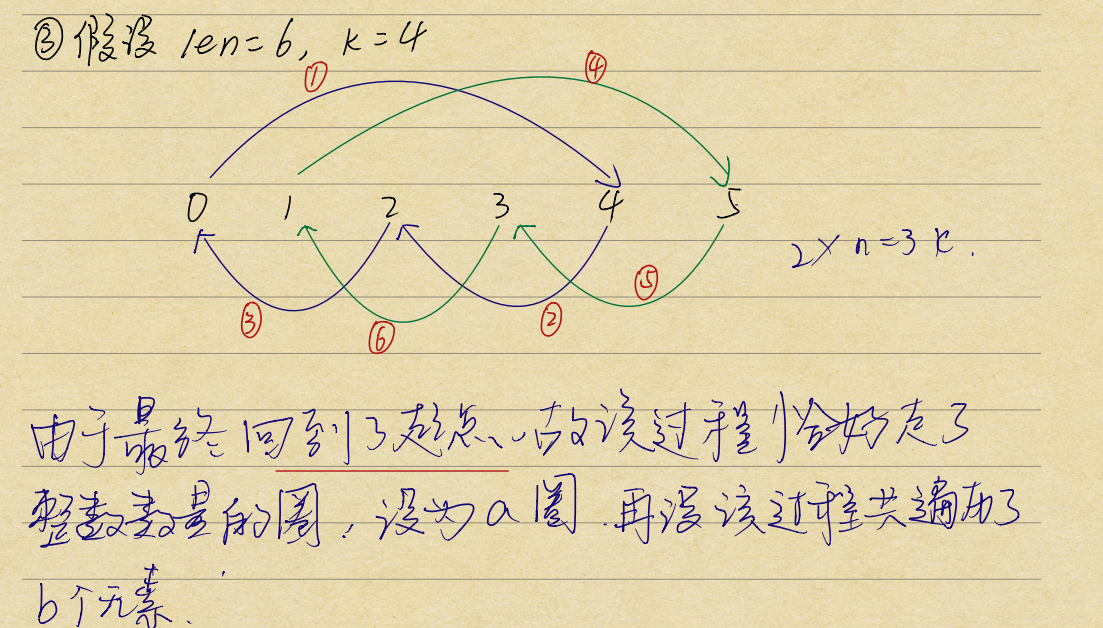 ③假设 len=6, k=4
① ④
0 1 2 3 4 5
2×n=3k.
③ ⑥ ② ⑤
由于最终回到了起点、故该过程恰好走了
整数数量的圈,设为a圈.再设该过程共遍历了
b个元素.